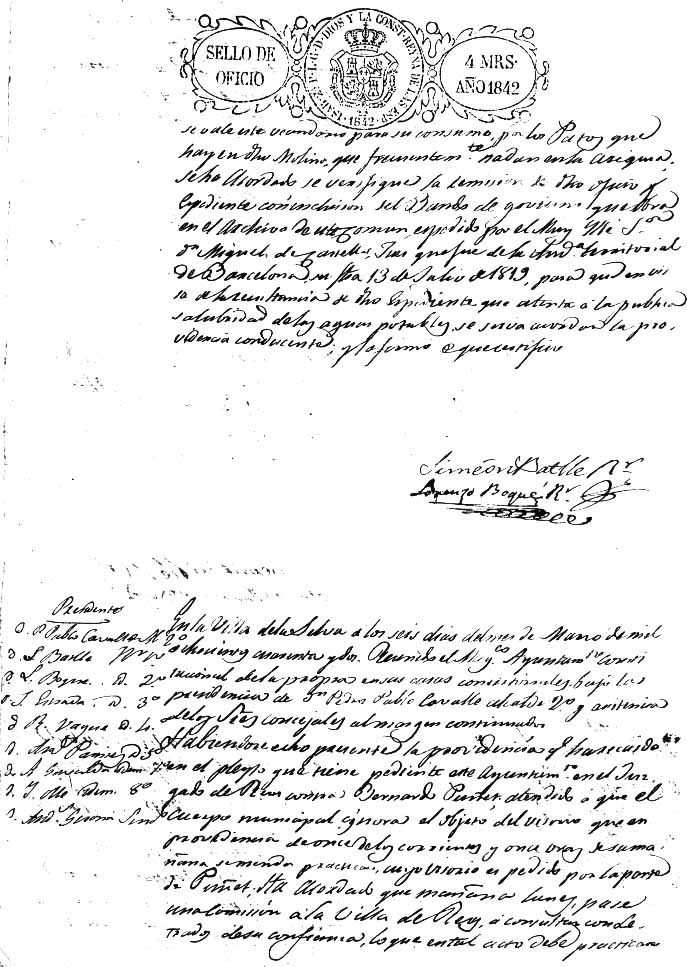 SELLO DE
OFICIO
ISAB. 2ª P. L. G. D. DIOS Y LA CONST. REYNA DE LAS ESP.
1842
4 MRS.
AÑO 1842
se vale este vecindario para su consumo, por los Patos que
hay en dho Molino, que frecuentemte nadan en la Asequia,
se ha Acordado se verifique la remision de dho oficio y
Espediente con inclusion del Bando de govierno que obra
en el Archivo de este Comun, espedido por el Muy Ille Sor
Dn Miguel de Juez que fue de la Audª territorial
de Barcelona, su fha 13 de Julio de 1819, para que en vis
ta de la resultancia de dho Espediente que atenta a la publica
salubridad de las aguas potables, se sirva acordar la pro-
videncia conducente, y lo firmo de que certifico
Simeon Batlle Rr
Lorenzo Boqué Rr
Presidente
D. Po Pablo Cavallé Ale 2º
D. S. Batlle Rr
D. L. Boque D. 2º
D. 3º
D. R. D. 4º
D.
D.
D. J. Idem 8º
D. Ands Sindo
En la Villa de la Selva a los seis dias del mes de Marzo de mil
ochocientos cuarenta y dos. Reunido el Magco Ayuntamto Consti
tucional de la propia en sus casas consistoriales, bajo la
presidencia de Dn Pedro Pablo Cavallé alcalde 2º y asistencia
de los Sres concejales al margen continuados
Habiendose echo presente la providencia qe ha recaido
en el pleyto que tiene pediente este Ayuntimto en el Juz
gado de Reus contra Bernardo Puñet, atendido a que el
Cuerpo municipal ignora el objeto del visorio que en
providencia de once de los corrientes y once oras de su ma
ñana se manda practicar, cuyo visorio es pedido por la parte
de Puñet, Ha Acordado que mañana lunes, pase
una Comision a la Villa de Reus, a consultar con le-
trados de su confianza, lo que en tal acto debe practicar